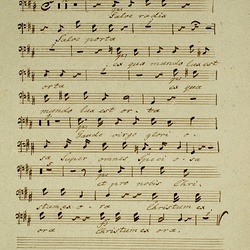 Salve radia
Salve porta
ex qua mundo lux est
orta ex qua
mundo lux est orta
Gaude virgo glorio
sa Super omnes Specio sa
et pro nobis Chri
stum exora Christum ex
ora Christum exora